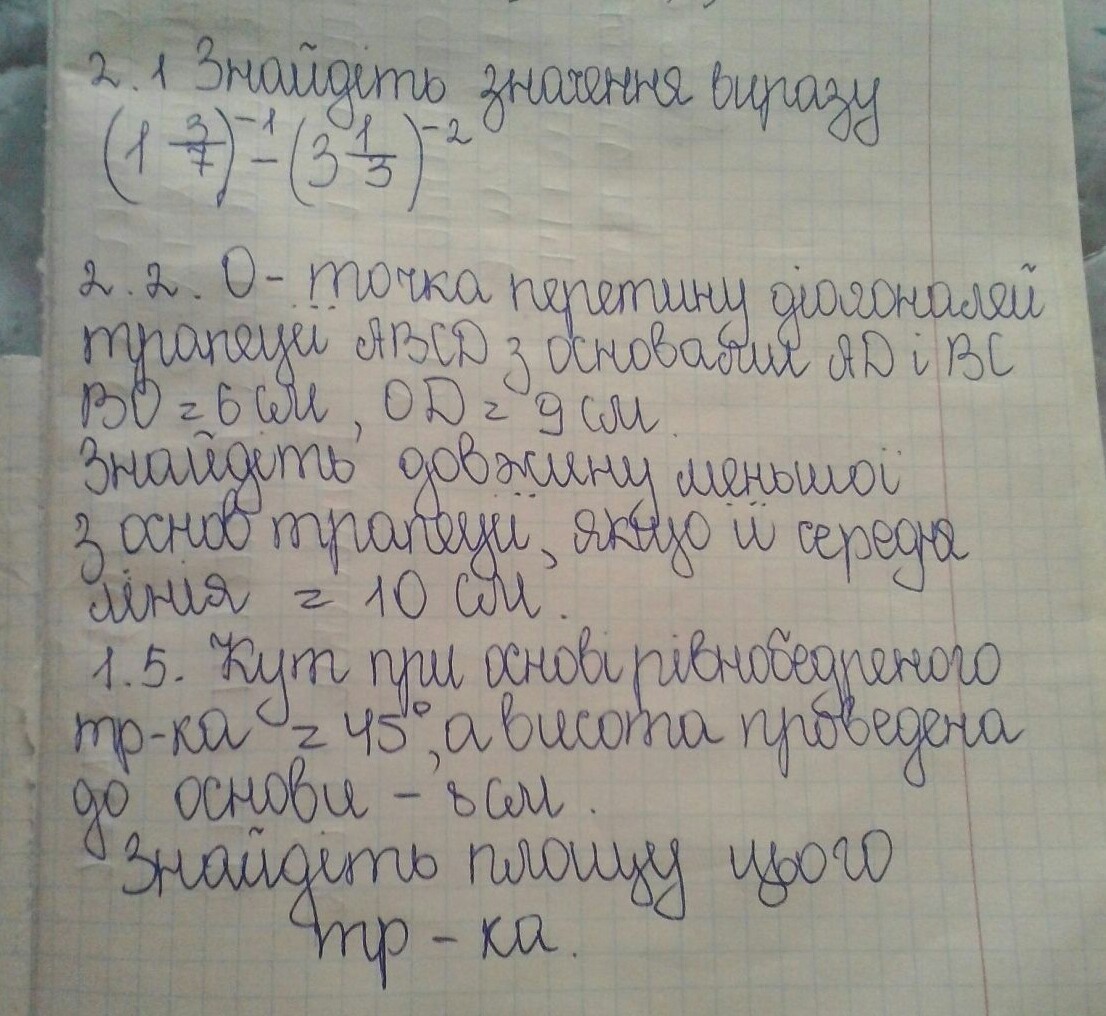 2.1 Знайдіть значення виразу
(1 3/7)^-1 - (3 1/3)^-2
2.2. О - точка перетину діагоналей
трапеції ABCD з основами AD і BC
BO = 6 см, OD = 9 см.
Знайдіть довжину меньшої
з основ трапеції, якщо її середня
лінія = 10 см.
1.5. Кут при основі рівнобедреного
тр-ка = 45°, а висота проведена
до основи - 8 см.
Знайдіть площу цього
тр - ка.